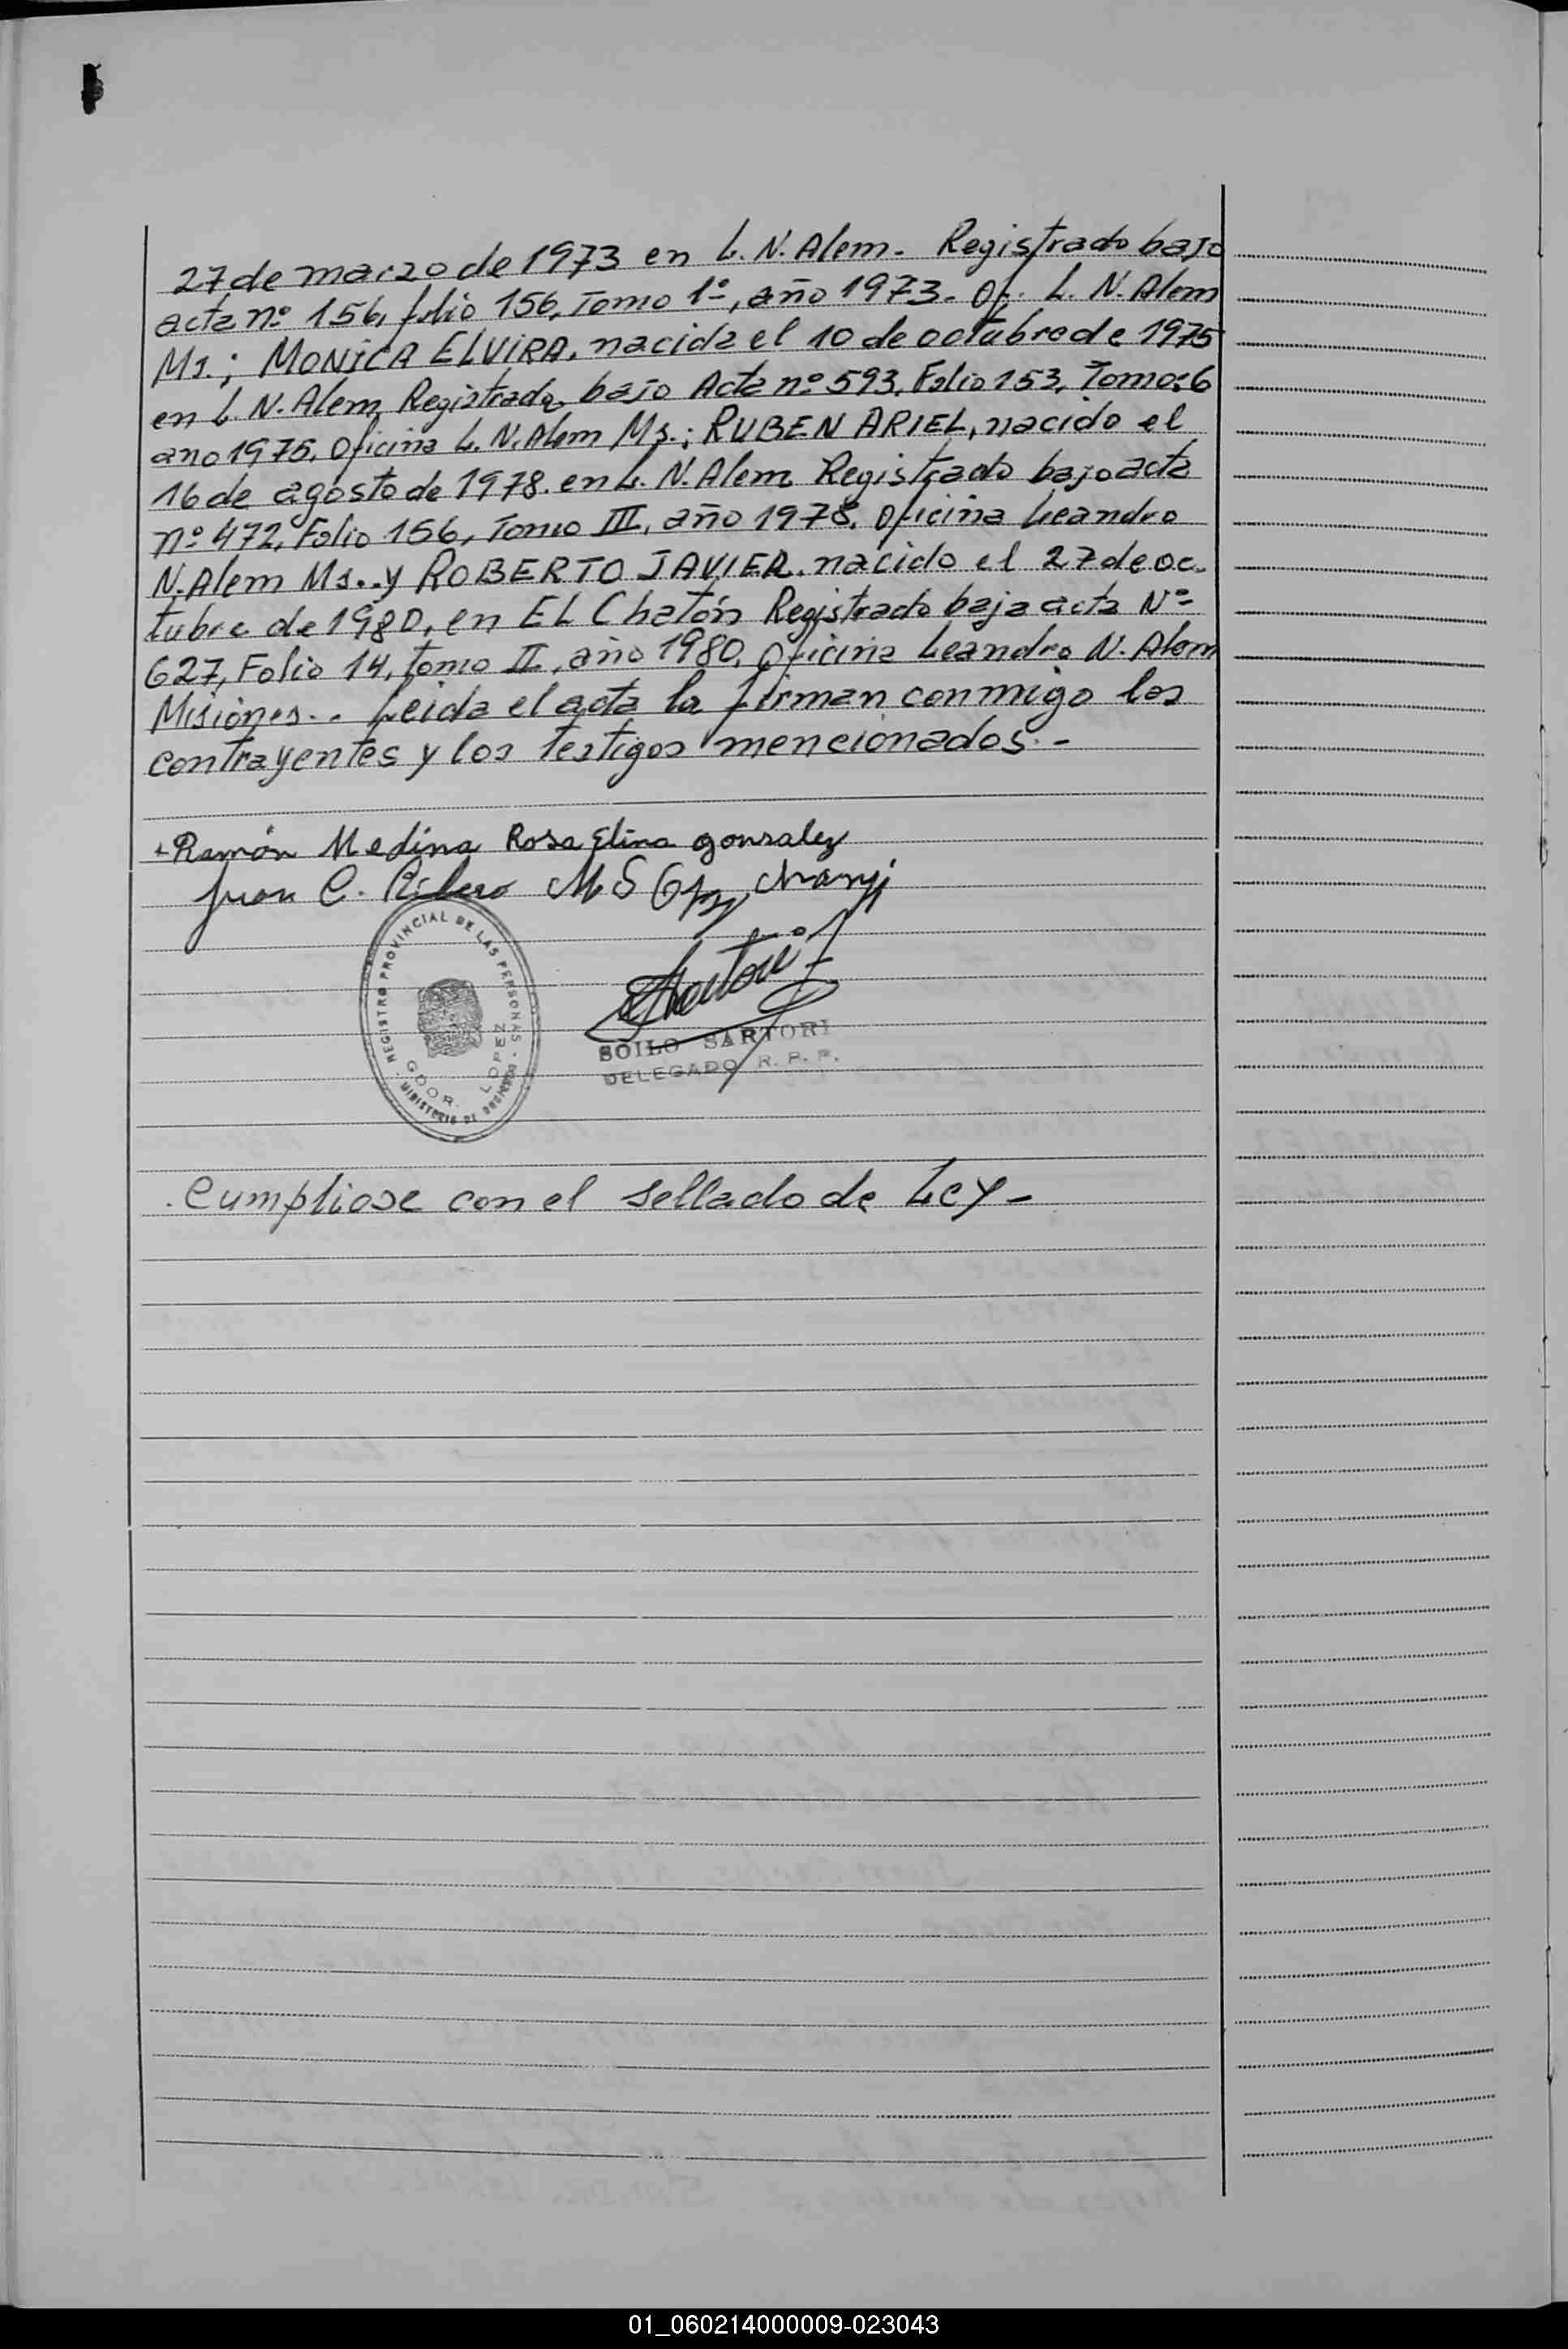 27 de marzo de 1973 en L. N. Alem. Registrado bajo
acta nº 156, folio 156, Tomo 1º, año 1973. Of. L. N. Alem
Ms.; MONICA ELVIRA, nacida el 10 de octubre de 1975
en L N. Alem, Registrada bajo Acta nº 593, Folio 153, Tomo: 6
año 1975, Oficina L. N. Alem Ms.; RUBEN ARIEL, nacido el
16 de agosto de 1978. en L. N. Alem Registrado bajo acta
nº 472, Folio 156, Tomo III, año 1978, Oficina Leandro
N. Alem Ms.. y ROBERTO JAVIER. nacido el 27 de oc-
tubre de 1980, en EL Chatón Registrado baja acta Nº
627, Folio 14, Tomo II, año 1980, Oficina Leandro N. Alem
Misiones.. Leida el acta la firman conmigo los
contrayentes y los testigos mencionados.-
+ Ramón Medina Rosa Elina gonzalez
Juan C.
REGISTRO PROVINCIAL DE LAS PERSONAS
GDOR. LOPEZ
MINISTERIO DE
SOILO SARTORI
DELEGADO R. P. P.
Cumpliose con el sellado de Ley-
01_060214000009-023043